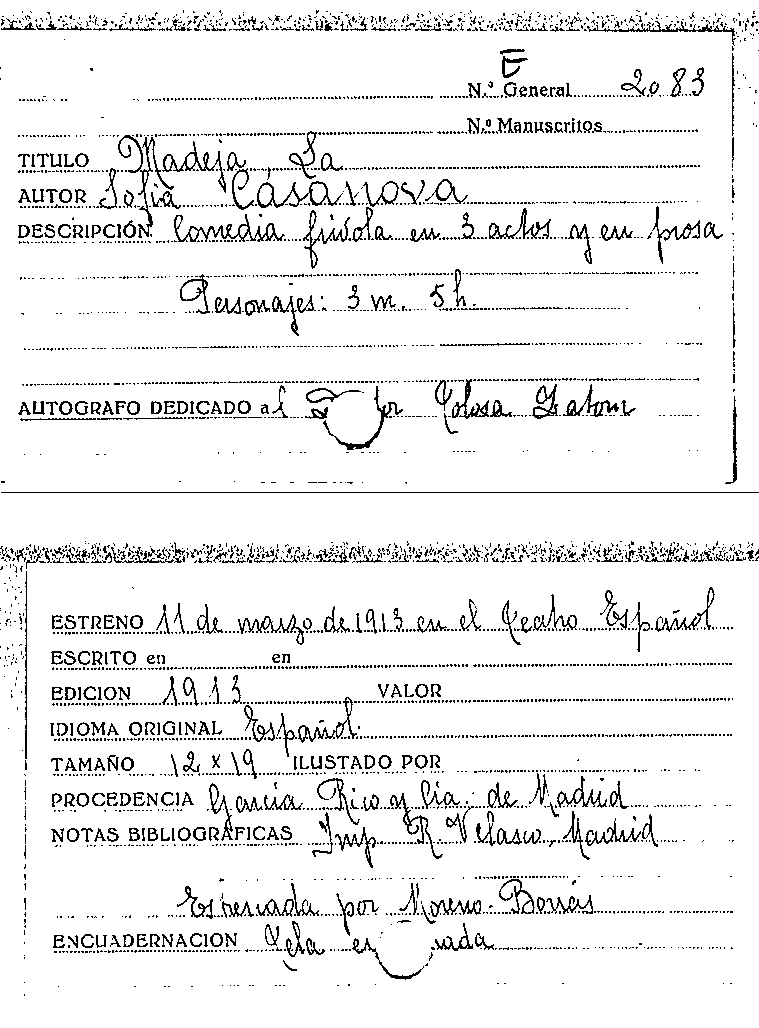 E
N.º General 2083
N.º Manuscritos
TITULO Madeja, La
AUTOR Sofia Casanova
DESCRIPCIÓN Comedia frívola en 3 actos y en prosa
Personajes: 3 m. 5 h.
AUTOGRAFO DEDICADO al
ESTRENO 11 de marzo de 1913 en el Teatro Español
ESCRITO en en
EDICION 1913 VALOR
IDIOMA ORIGINAL Español.
TAMAÑO 12 x 19 ILUSTADO POR
PROCEDENCIA García Rico y Cia. de Madrid
NOTAS BIBLIOGRAFICAS Imp R. Velasco, Madrid
Estrenada por Moreno-Borrás
ENCUADERNACION Tela